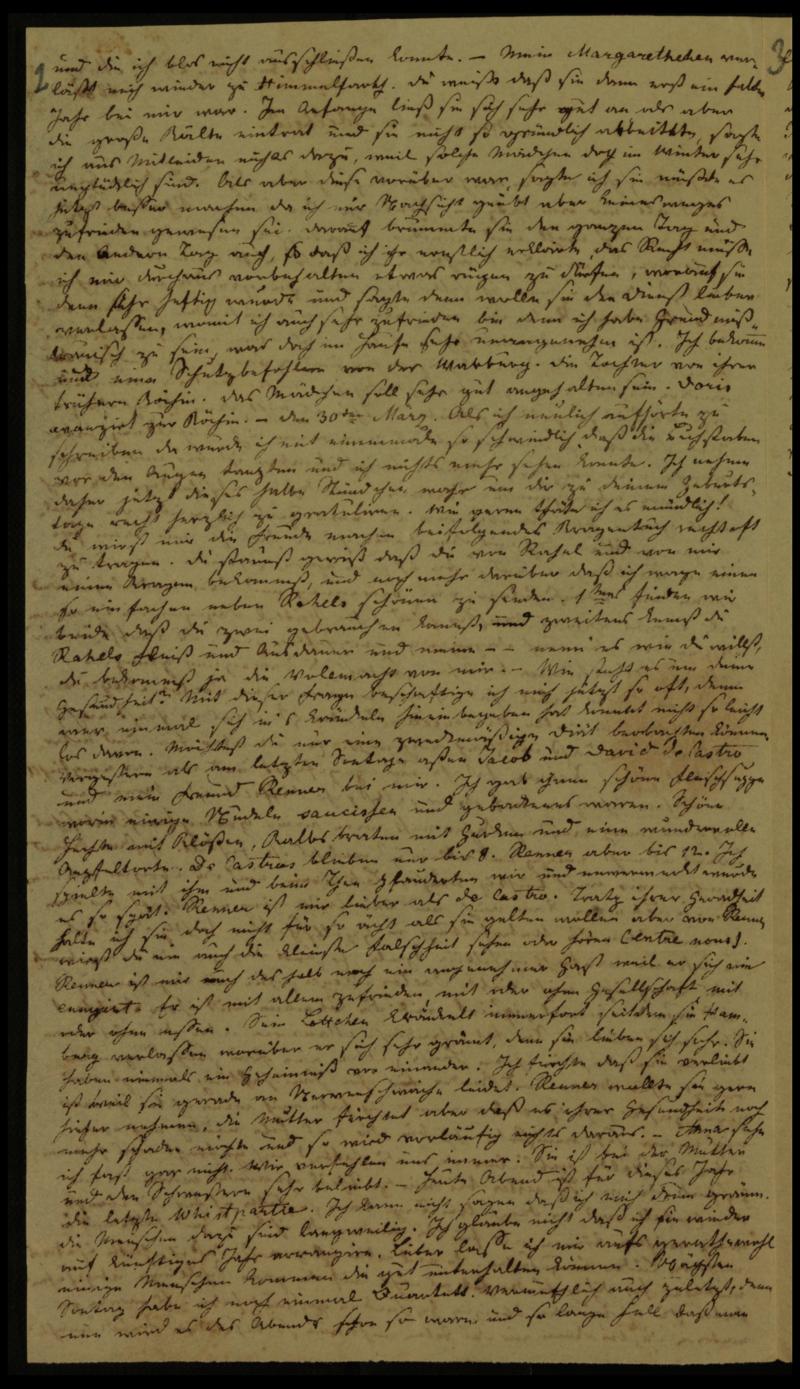 und die ich blos nicht ausschließen konnte. – Mein Margarethchen ver- 3
2 läßt mich wieder zu Himmelfarth. Du weißt daß sie dann erst ein halbes
Jahr bei mir war. Im Anfange ließ sie sich sehr gut an als aber
die große Kälte eintrat und sie nicht so gründlich arbeitete, sagte
ich aus Mitleiden nichts dazu, weil solche Mädchen doch im Winter sehr
unglücklich sind. Als aber diese vorüber war, sagte ich sie müßte es
jetzt besser machen da ich nur Nachsicht geübt aber keineswegs
zufrieden gewesen sei. Darauf brummte sie den ganzen Tag und
den andern Tag auch, so daß ich ihr ernstlich erklärte, das Recht müsse
ich mir durchaus vorbehalten etwas rügen zu dürfen, worauf sie
denn sehr heftig wurde und sagte dann wolle sie den Dienst lieber
verlassen, womit ich auch sehr zufrieden bin denn ich habe Grund miß-
trauisch zu sein, was doch im Hause sehr unangenehm ist. Ich bekomme
nun eine Schutzbefohlene von der Warburg. Die Tochter von ihrer
frühern Köchin. Das Mädchen soll sehr gut angehalten sein. Doris
avancirt zur Köchin. – Den 30ten März. Als ich neulich aufhörte zu
schreiben da wurde ich mit einemmale so schwindlich daß die Buchstaben
vor den Augen tanzten und ich nichts mehr sehen konnte. Ich nehme
daher jetzt dieses halbe Stündchen wahr um dir zu deinem Geburts-
tage recht herzlich zu gratuliren. Wie gerne thäte ich es mündlich!
Du wirst mir die Freude machen beifolgendes Kragentuch recht oft
zu tragen. Du staunst gewiß daß du von Rahel und von mir
einen Kragen bekommst, und noch mehr darüber daß ich wage einen
so einfachen neben Rahels schönen zu senden. 1tens finden wir
beide daß du zwei gebrauchen kannst, und zweitens kennst du
Rahels Fleiß und Ausdauer und meine – – nenn es wie du willst,
du bekommst ja die Vollmacht von mir. – Wie steht es um deine
Gesundheit? Mit dieser Frage beschäftige ich mich jetzt so oft, denn
wer einmal sich in's Kränkeln hineinbegeben hat kommt nicht so leicht
los davon. Möchtest du nur eine zweckmäßige Diät beobachten können.
Vorgestern als am letzten Sontage aßen Jacob und David de Castro
und mein Freund Renner bei mir. Ich gab ihnen schöne Fleischsuppe
worin einige Nudeln saucissen und gebackenes waren. Schöne
Hechte mit Klößen, Kalbsbraten mit Gurken und eine wundervolle
Apfeltorte. De Castros blieben nur bis 8. Renner aber bis 12. Ich
spielte mit ihm und beim Thee plauderten wir und unvermerkt wurde
es so spät. Renner ist mir lieber als de Castro. Trotz ihrer Geradheit
halte ich sie doch nicht für so ächt als sie gelten wollen aber von Renner
wirst du nie auch die kleinste Falschheit sehen oder hören (entre nous).
Renner ist mir auch deshalb noch ein angenehmer Gast weil er sich nie
ennuyirt. Er ist mit allem zufrieden, mit oder ohne Gesellschaft mit
oder ohne Essen. Sein Lottchen kränkelt immerfort seitdem sie Ham-
burg verlassen worüber er sich sehr grämt, denn sie lieben sich sehr. Sie
haben niemals ein Geheimniß vor einander. Ich fürchte daß sie verliebt
ist weil sie gerade an Nervenschwäche leidet. Renner wollte sie gern
hieher nehmen, die Mutter fürchtet aber daß es ihrer Gesundheit noch
mehr schaden möchte und so wird vorläufig nichts daraus. – Anna sehe
ich fast gar nicht. Wir verfehlen uns immer. Sie ist bei der Mutter
und den Schwestern sehr beliebt. – Heute Abend ist für dieses Jahr
die letzte Whistpartie. Ich kann nicht sagen daß ich mich drum gräme.
Die Menschen dazu sind langweilig. Ich glaube nicht daß ich sie wieder
auf künftiges Jahr arrangire. Lieber lasse ich mir aufs gerathewohl
einige Menschen kommen die gut unterhalten können. Nächsten
Sontag habe ich noch einmal Quartett. Vermuthlich auch zuletzt, denn
nun wird es des Abends schon so warm und so lange hell daß man